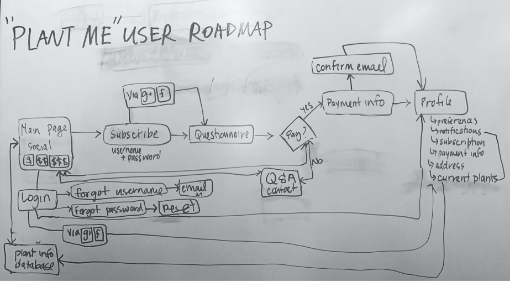 "PLANT ME" USER ROADMAP
confirm email
via g+ f
Main Page
Social
$ $$ $$$
Subscribe
username
+ password
Questionnaire
Pay?
yes
No
Payment info
Profile
preferences
notifications
subscription
payment info
address
current plants
Q&A
contact
Login
forgot username
email
forgot password
reset
via g+ f
plant info
database